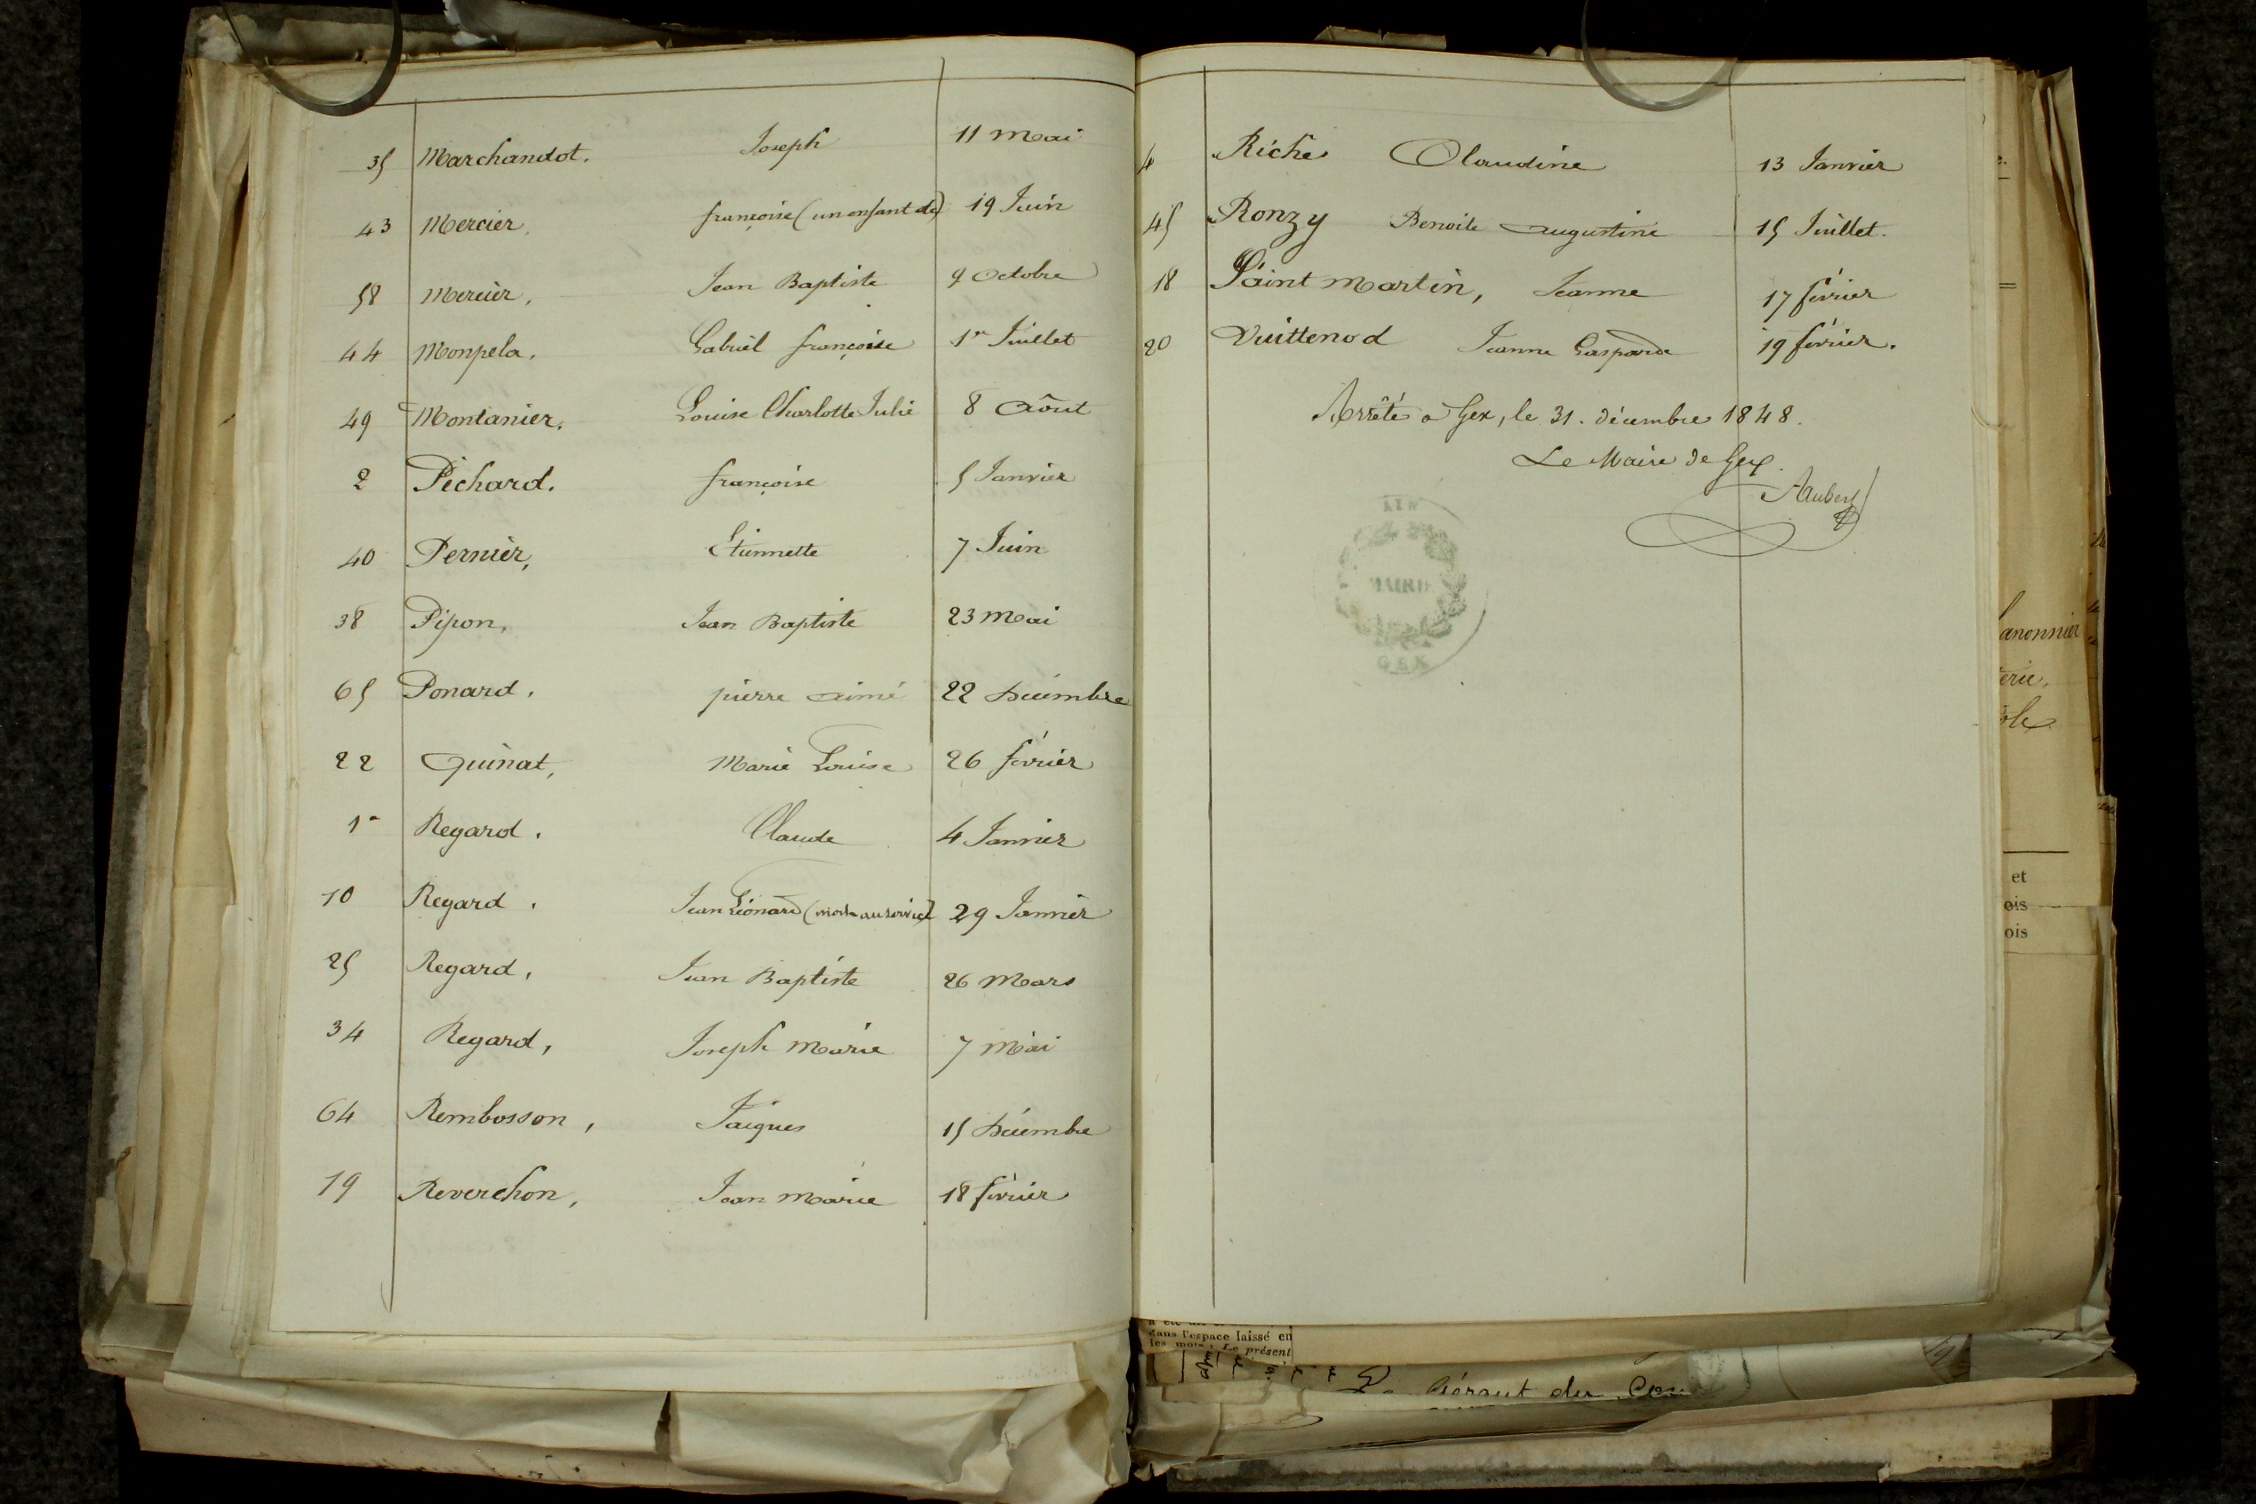 35 Marchandot. Joseph 11 Mai
43 Mercier, françoise (un enfant de) 19 Juin
58 Mercier, Jean Baptiste 9 Octobre
44 Monpela. Gabriel françoise 1er Juillet
49 Montanier, Louise Charlotte Julie 8 Aôut
2 Péchard. françoise 5 Janvier
40 Pernier, Etiennette 7 Juin
38 Pipon, Jean Baptiste 23 Mai
65 Ponard, pierre aimé 22 Décembre
22 Quinat, Marie Louise 26 février
1er Regard. Claude 4 Janvier
10 Regard. Jean Léonard (mort au service) 29 Janvier
25 Regard, Jean Baptiste 26 Mars
34 Regard, Joseph Marie 7 Mai
64 Rembosson, Jacques 15 Décembre
19 Reverchon, Jean Marie 18 février
4 Riche Claudine 13 Janvier
45 Ronzy Benoite augustine 15 Juillet.
18 Saint Martin, Jeanne 17 février
20 Vuittenod Jeanne Gasparde 19 février.
Arrêté à Gex, le 31. décembre 1848.
Le Maire de Gex.
AIN
MAIRIE
GEX
anonnier
et
ois
ois
dans l'espace laissé en
les mots : Le présent